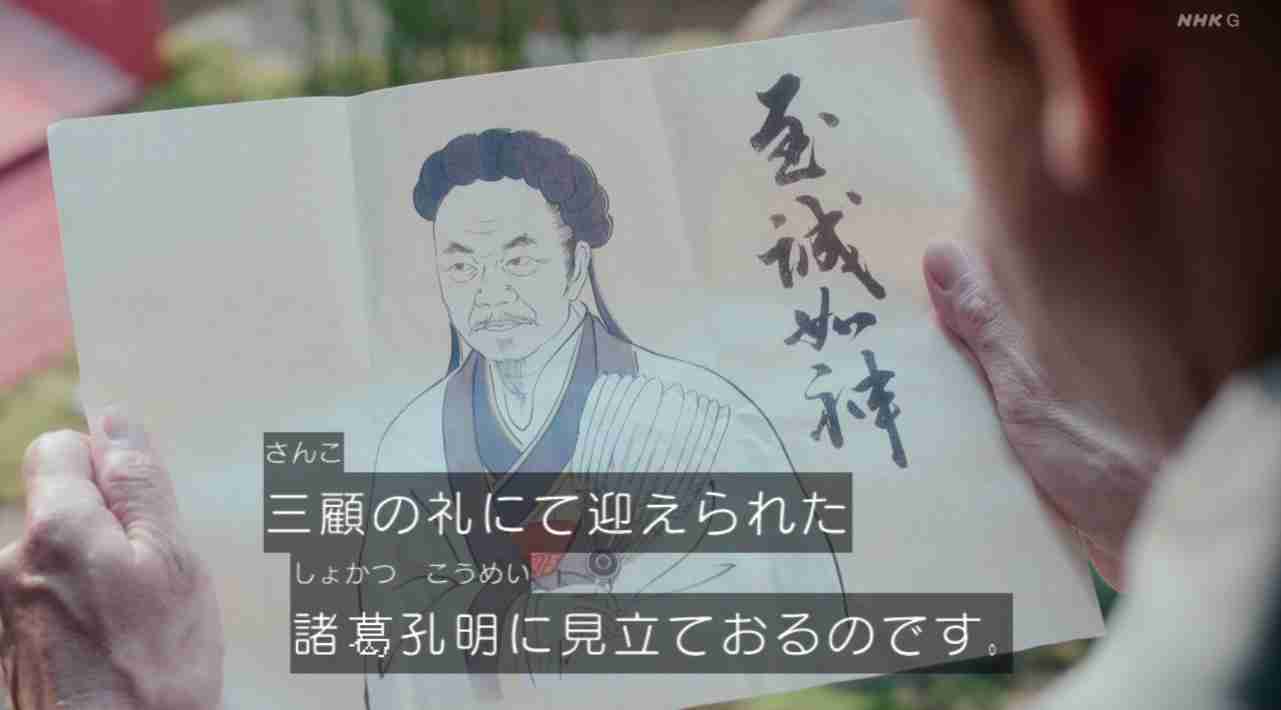 NHK G
至誠如神
さんこ
三顧の礼にて迎えられた
しょかつ こうめい
諸葛孔明に見立ておるのです。